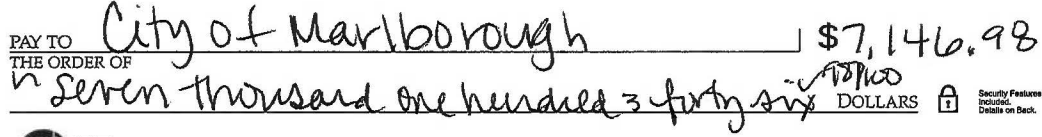 PAY TO THE ORDER OF City of Marlborough $7,146.98
Seven thousand one hundred & forty six 98/100 DOLLARS
Security Features Included. Details on Back.